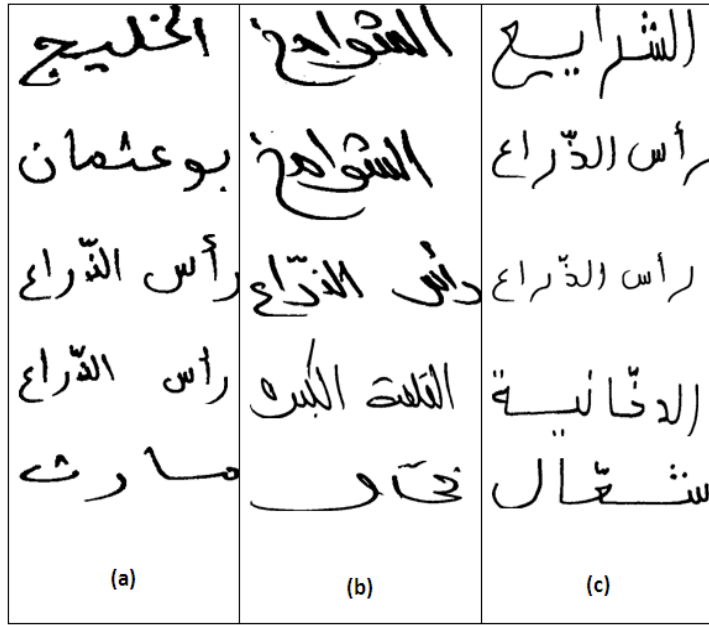 الخليج
بوعثمان
رأس الذّراع
رأس الذّراع
مارث
(a)
الشوامخ
الشوامخ
رأس الذّراع
القلعة الكبرى
(b)
الشرايع
رأس الذّراع
رأس الذّراع
الدخّانية
شعّال
(c)